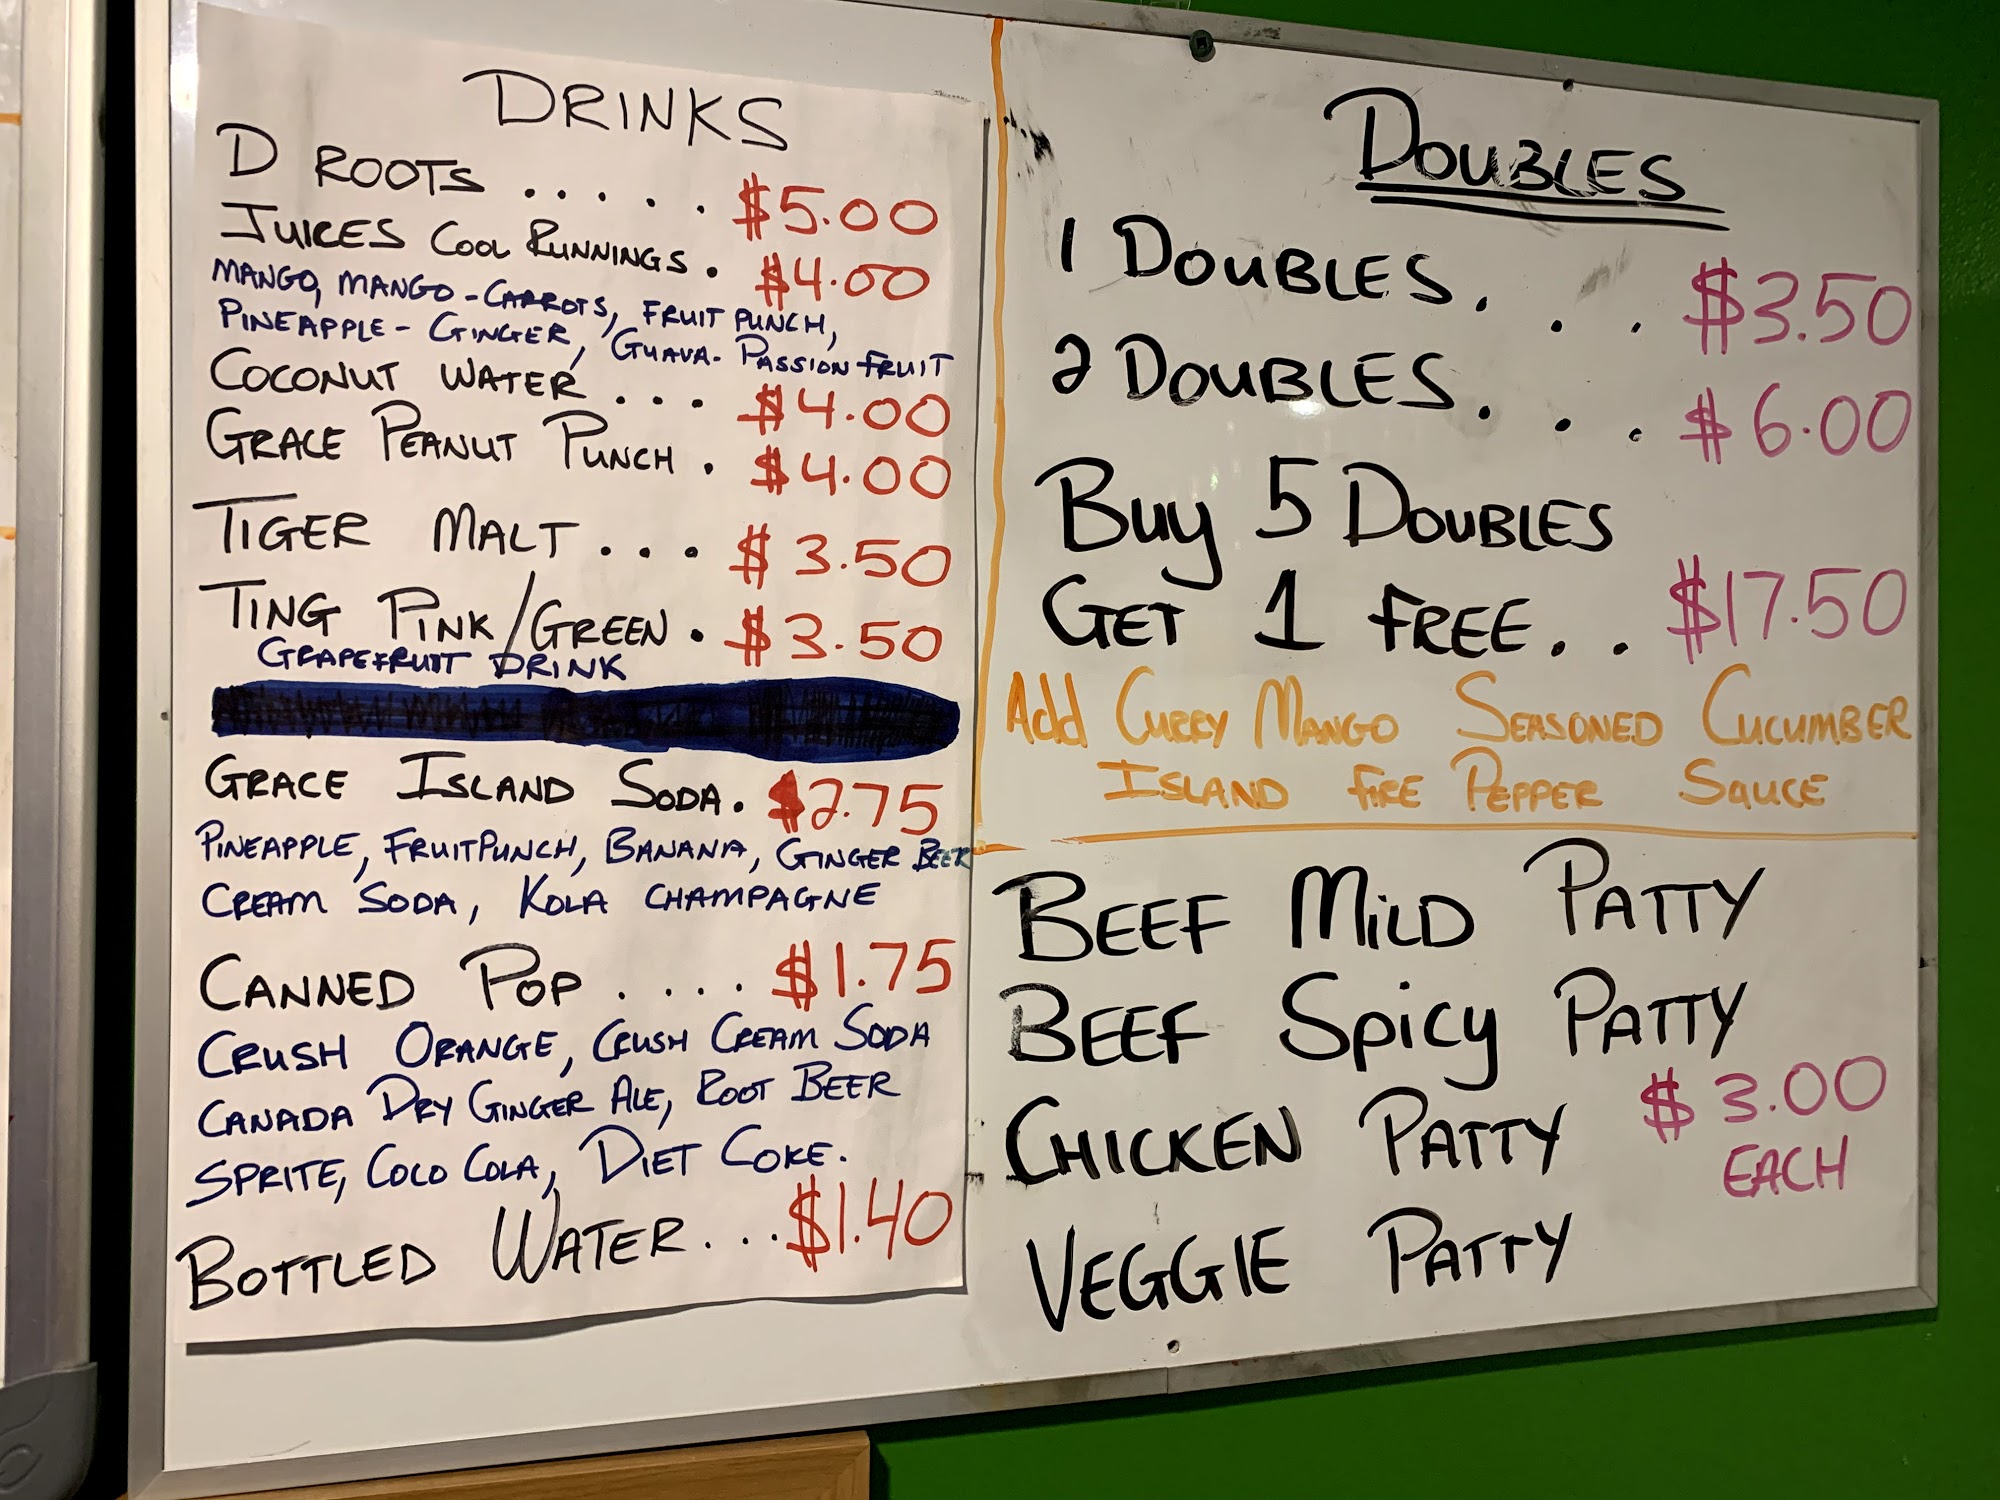 DRINKS
D ROOTS ..... $5.00
JUICES COOL RUNNINGS. $4.00
MANGO, MANGO-CARROTS, FRUIT PUNCH,
PINEAPPLE-GINGER, GUAVA-PASSION FRUIT
COCONUT WATER ... $4.00
GRACE PEANUT PUNCH. $4.00
TIGER MALT ... $3.50
TING PINK/GREEN. $3.50
GRAPEFRUIT DRINK
GRACE ISLAND SODA. $2.75
PINEAPPLE, FRUITPUNCH, BANANA, GINGER BEER
CREAM SODA, KOLA CHAMPAGNE
CANNED POP .... $1.75
CRUSH ORANGE, CRUSH CREAM SODA
CANADA DRY GINGER ALE, ROOT BEER
SPRITE, COCO COLA, DIET COKE.
BOTTLED WATER... $1.40
DOUBLES
1 DOUBLES... $3.50
2 DOUBLES... $6.00
Buy 5 DOUBLES
GET 1 FREE.. $17.50
Add CURRY MANGO SEASONED CUCUMBER
ISLAND FIRE PEPPER SAUCE
BEEF MiLD PATTY
BEEF Spicy PATTY
CHICKEN PATTY $3.00
EACH
VEGGIE PATTY